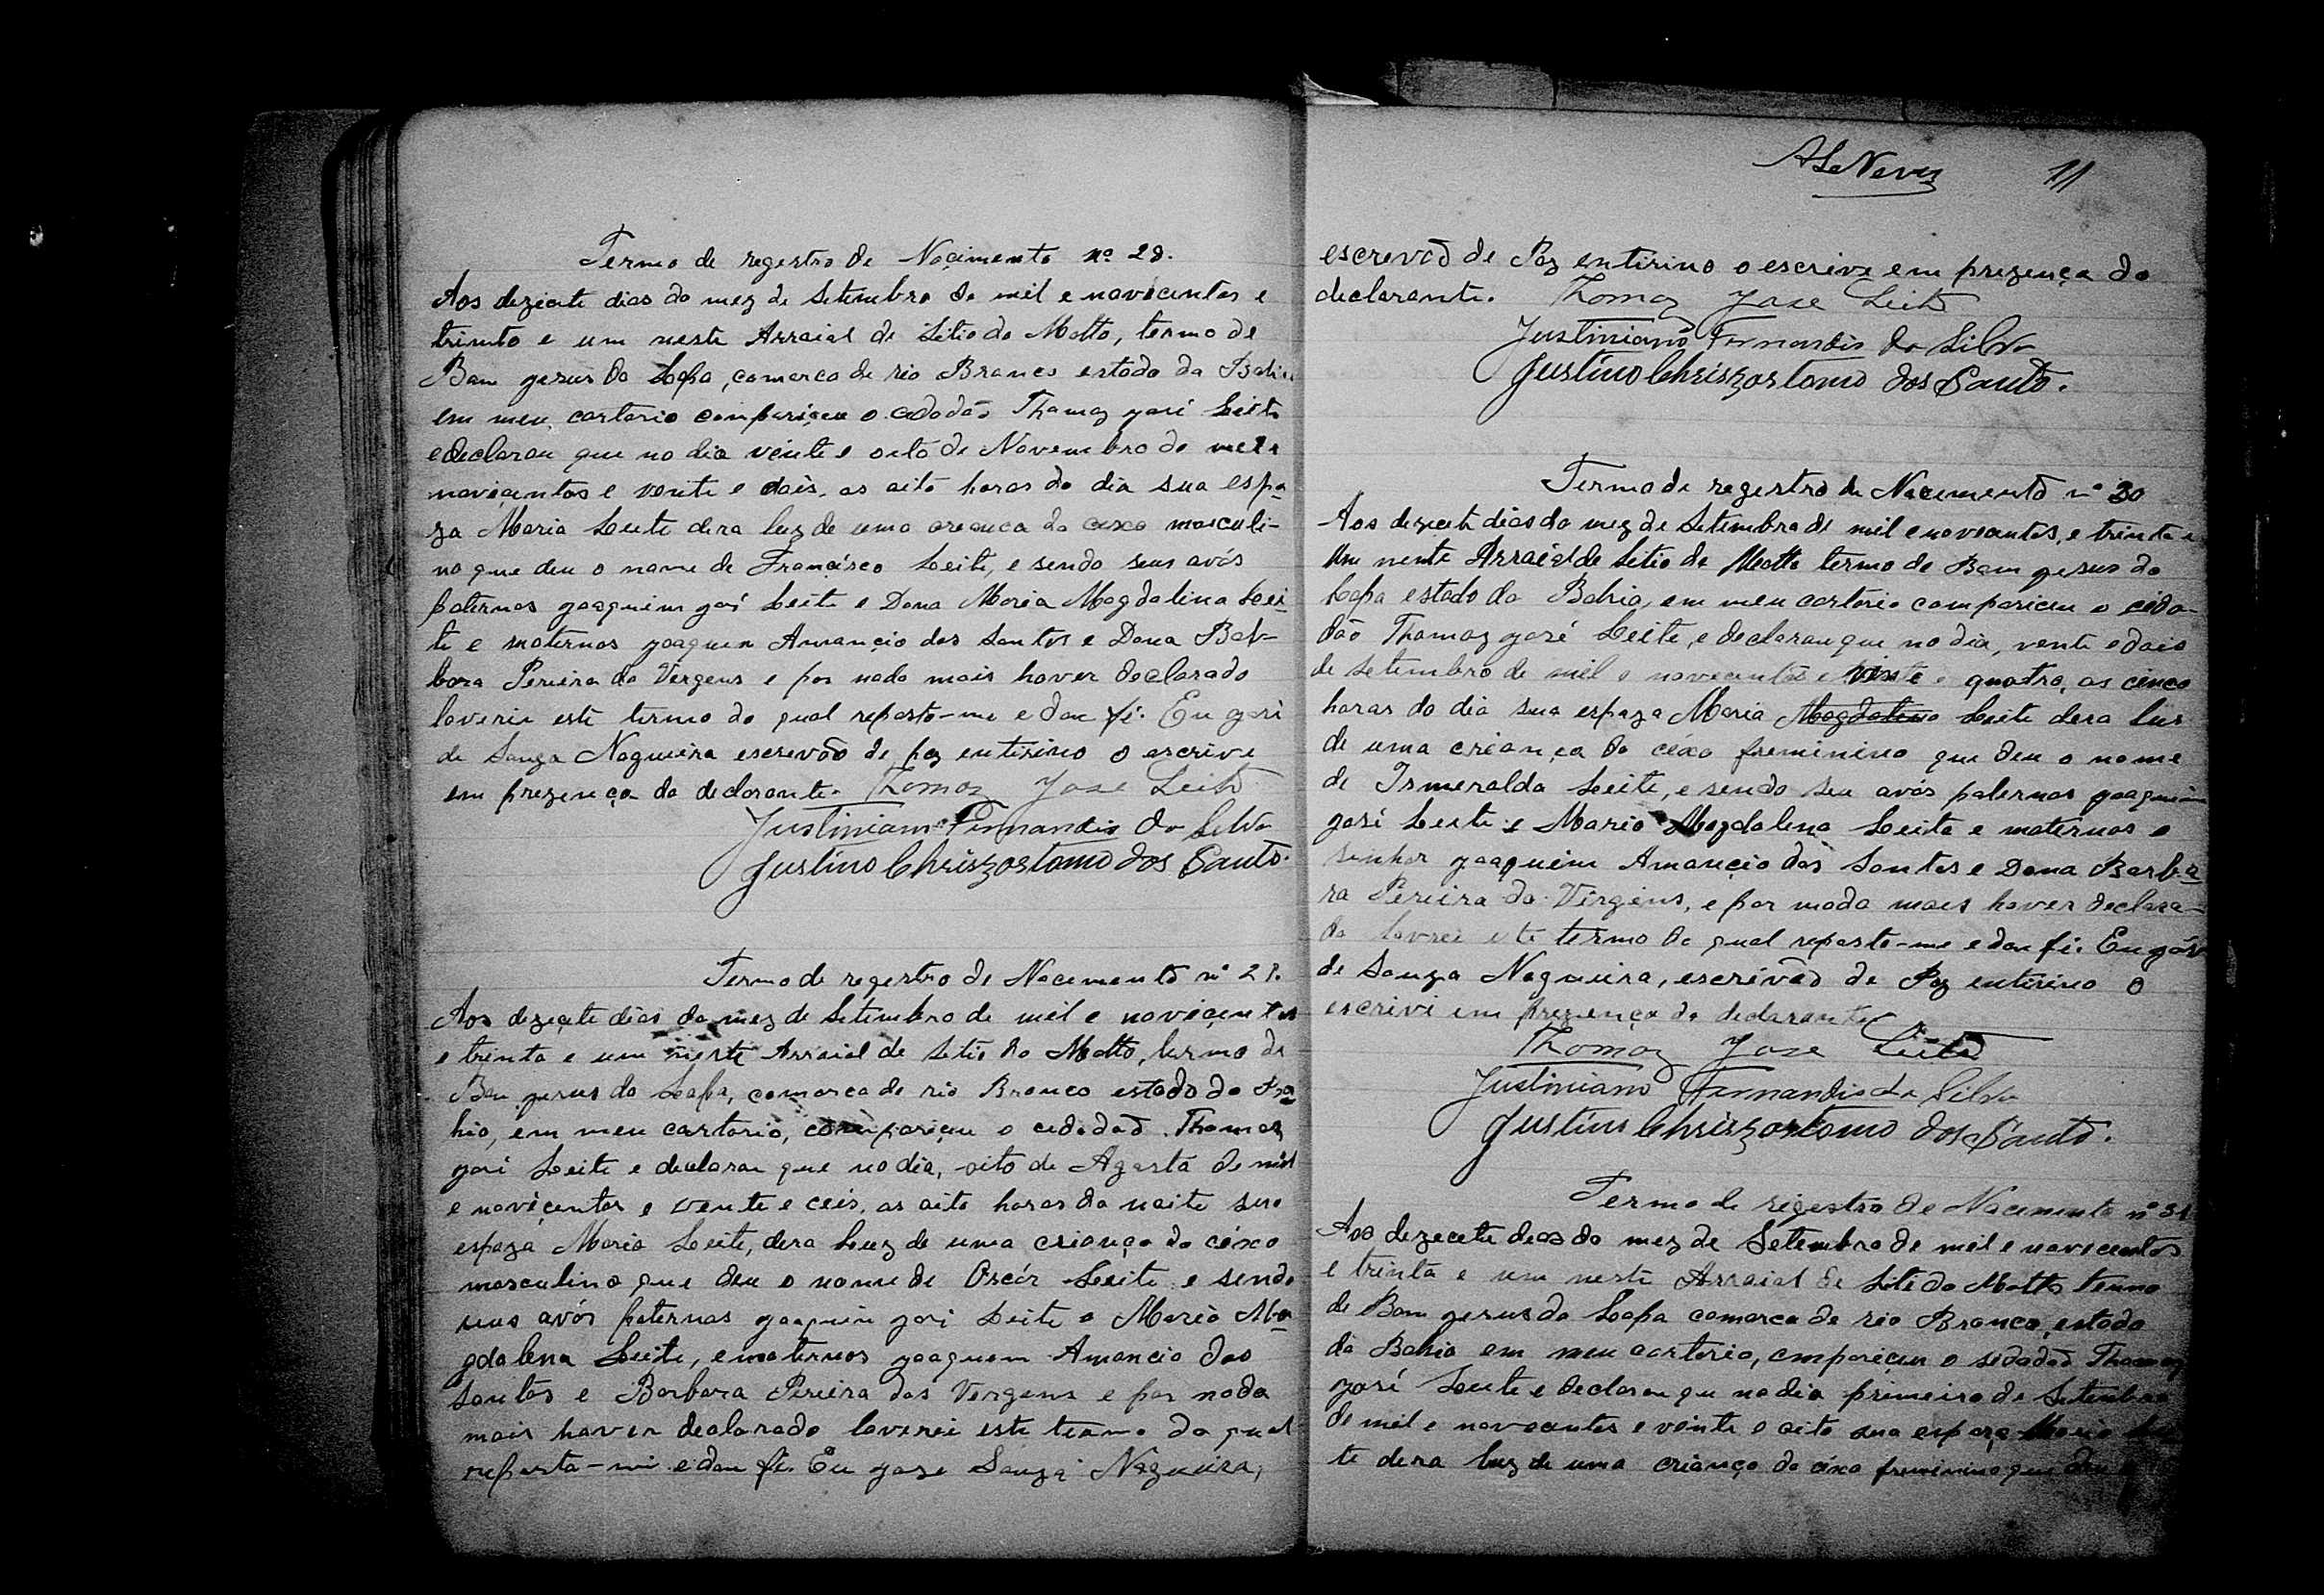 Termo de regestro de Nacimento nº 28.
Aos dezicete dias do mez de Setembro de mil e novicentos e
trinta e um neste Arraial de Sitio do Motto, termo de
Bam gesus da Lapa, comarca de rio Branco estado da Bahia
em meu cartorio compariceu o cidadão Thomaz gosé Leite
e declarou que no dia vinte e oito de Novembro de mil e
novicentos e vente e dois, as oito horas do dia sua espo-
za Maria Leite dera luz de uma creanca do cexo masculi-
no que deu o nome de Francisco Leite, e sendo seus avós
paternos goaquim gosé Leite e Dona Maria Magdalina Lei-
te e maternos goaquim Amancio dos Santos e Dona Bar-
bara Pereira da Vergens e por nada mais haver declarado
laverei este termo do qual reposto-me e dou fé. Eu gosé
de Souza Nogueira escrevão de paz entirino o escrive
em prezença do declarante. Thomaz Jose Leite
Justiniano Fernandis da Silva
Justino Chriszostomo dos Santo.
Termo de regestro de Nacemento nº 29.
Aos dezicete dias do mez de Setembro de mil e novicentos
e trenta e um neste Arraial de Sitio do Motto, termo de
Bom gesus da Lapa, comarca de rio Branco estado da Ba-
hia, em meu cartorio, compariceu o cidadão Thomaz
gosé Leite e declarou que no dia, oito de Agosto de mil
e novicentos e vente e ceis, as oito horas da noite sua
espoza Maria Leite, dera luz de uma criança do céxo
masculino, que deu o nome de Oscár Leite e sendo
seus avós paternos goaquim gosé Leite e Maria Ma-
gdalena Leite, e maternos goaquem Amancio dos
Santos e Barbara Pereira das Vergens e por nada
mais haver declarado laverei este termo do qual
reposto-me e dou fé. Eu gose Souza Nogueira,
ALeNeves 11
escrevão de Paz entirino o escrive em prezença do
declarante. Thomaz Jose Leite
Justiniano Fernandis da Silva
Justino Chriszostomo dos Santo.
Termo de regestro de Nacemento nº 30
Aos dezicete dias do mez de Setembro de mil e novecentos, e trinta e
um neste Arraial de Sitio do Motto termo de Bom gesus da
Lapa estado da Bahia, em meu cartorio compariceu o cida-
dão Thomaz gosé Leite, e declarou que no dia, vente e dois
de setembro de mil e novecentos e vinte e quatro, as cinco
horas do dia sua espoza Maria Magdalena Leite dera lus
de uma criança do céxo freminino que deu o nome
de Ismeralda Leite, e sendo seu avós paternos goaquim
gosé Leite e Maria Magdalena Leite e maternos o
senhor goaquim Amancio dos Santos e Dona Barba-
ra Pereira da Virgens, e por nada mais haver declara-
do lavrei este termo do qual reposto-me e dou fé. Eu gosé
de Souza Nogueira, escrivão de Paz entirino O
escrivi em prezença do declarante
Thomaz Jose Leite
Justiniano Fernandis da Silva
Justino Chriszostomo dos Santo.
Termo de regestro de Nacemento nº 31
Aos dezecete deas do mez de Setembro de mil e novicentos
e trinta e um neste Arraial de Sitio do Motto termo
de Bom gesus da Lapa comarca de rio Branco, estado
da Bahia em meu cartorio, compariceu o sidadão Thomaz
gosé Leite e declarou qu no dia primeiro de Setembro
de mil e novecentos e vinte e oito sua espoza Maria Lei-
te dera luz de uma criança do céxo freminino que deu o